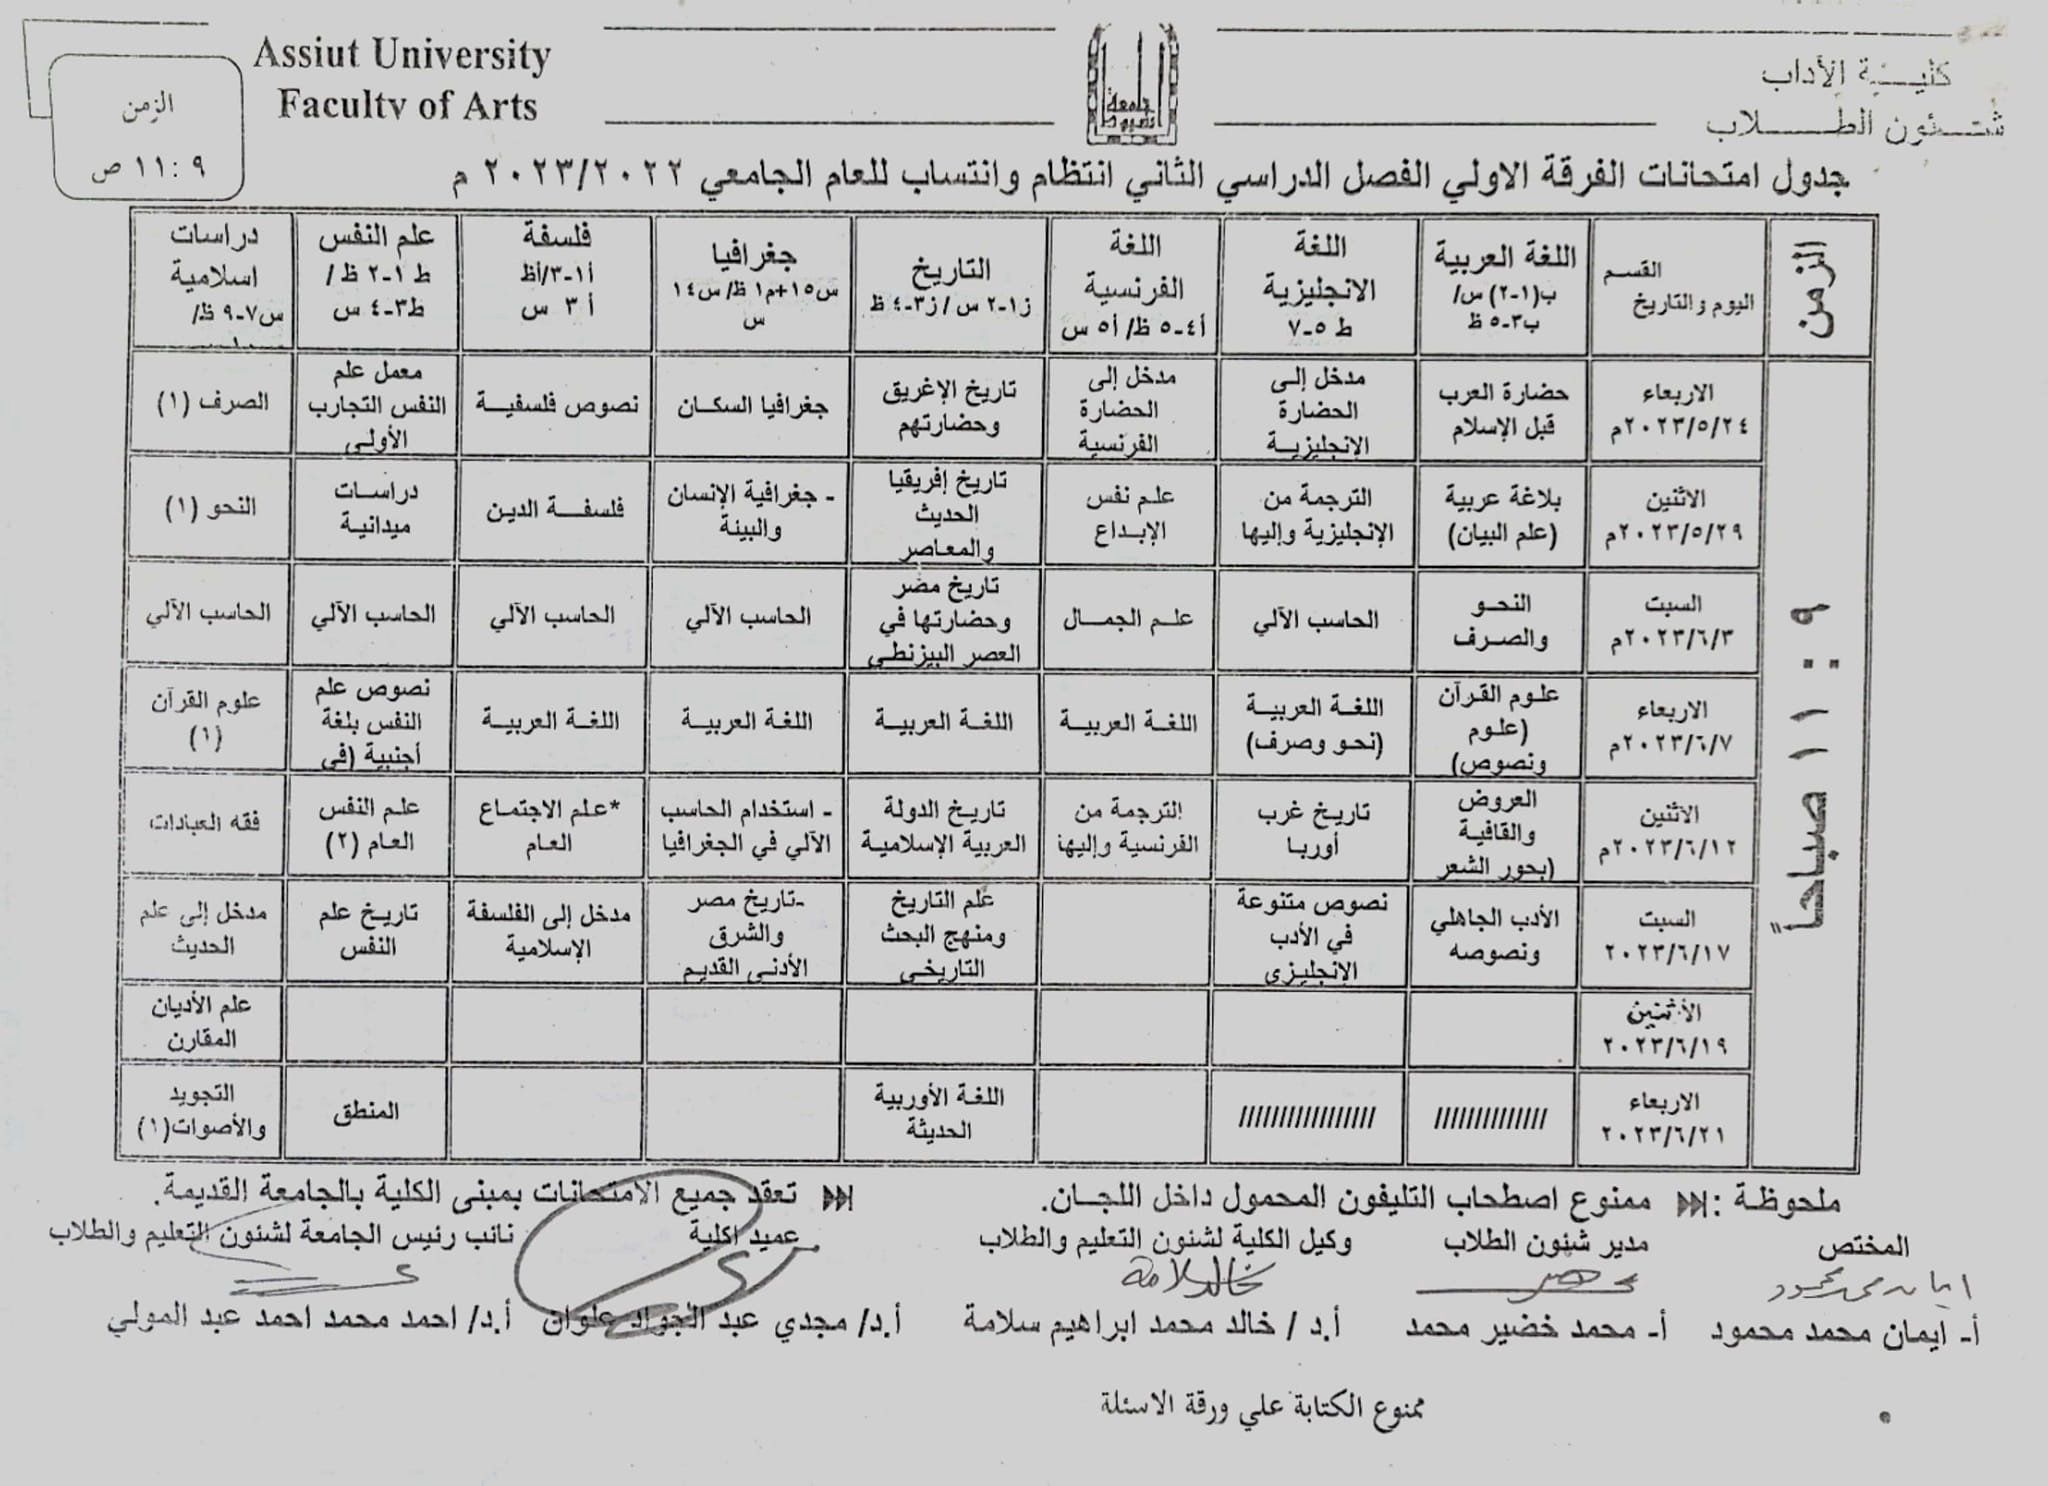 Assiut University
Faculty of Arts
جامعة
اسيوط
كليـــة الأداب
شئـــون الطـــــلاب
الزمن
٩ : ١١ ص
جدول امتحانات الفرقة الاولي الفصل الدراسي الثاني انتظام وانتساب للعام الجامعي ٢٠٢٣/٢٠٢٢ م
الزمن
القسم
اليوم والتاريخ
اللغة العربية
ب(١-٢) س/
ب٣-٥ ظ
اللغة
الانجليزية
ط ٥-٧
اللغة
الفرنسية
أ٤-٥ ظ/ أ٥ س
التاريخ
ز١-٢ س / ز٣-٤ ظ
جغرافيا
س١٥+م١ ظ/ س١٤
س
فلسفة
أ١-٣/أظ
أ ٣ س
علم النفس
ط ١-٢ ظ /
ط٣-٤ س
دراسات
اسلامية
س٧-٩ ظ/
٩ : ١١ صباحاً
الاربعاء
٢٠٢٣/٥/٢٤م
حضارة العرب
قبل الإسلام
مدخل إلى
الحضارة
الإنجليزية
مدخل إلى
الحضارة
الفرنسية
تاريخ الإغريق
وحضارتهم
جغرافيا السكان
نصوص فلسفية
معمل علم
النفس التجارب
الأولى
الصرف (١)
الاثنين
٢٠٢٣/٥/٢٩م
بلاغة عربية
(علم البيان)
الترجمة من
الإنجليزية وإليها
علم نفس
الإبداع
تاريخ إفريقيا
الحديث
والمعاصر
- جغرافية الإنسان
والبيئة
فلسفة الدين
دراسات
ميدانية
النحو (١)
السبت
٢٠٢٣/٦/٣م
النحو
والصرف
الحاسب الآلي
علم الجمال
تاريخ مصر
وحضارتها في
العصر البيزنطي
الحاسب الآلي
الحاسب الآلي
الحاسب الآلي
الحاسب الآلي
الاربعاء
٢٠٢٣/٦/٧م
علوم القرآن
(علوم
ونصوص)
اللغة العربية
(نحو وصرف)
اللغة العربية
اللغة العربية
اللغة العربية
اللغة العربية
نصوص علم
النفس بلغة
أجنبية (في
علوم القرآن
(١)
الاثنين
٢٠٢٣/٦/١٢م
العروض
والقافية
(بحور الشعر
تاريخ غرب
أوربا
الترجمة من
الفرنسية وإليها
تاريخ الدولة
العربية الإسلامية
- استخدام الحاسب
الآلي في الجغرافيا
*علم الاجتماع
العام
علم النفس
العام (٢)
فقه العبادات
السبت
٢٠٢٣/٦/١٧
الأدب الجاهلي
ونصوصه
نصوص متنوعة
في الأدب
الإنجليزي
علم التاريخ
ومنهج البحث
التاريخي
-تاريخ مصر
والشرق
الأدنى القديم
مدخل إلى الفلسفة
الإسلامية
تاريخ علم
النفس
مدخل إلى علم
الحديث
الأثنين
٢٠٢٣/٦/١٩
علم الأديان
المقارن
الاربعاء
٢٠٢٣/٦/٢١
//////////////
/////////////////
اللغة الأوربية
الحديثة
المنطق
التجويد
والأصوات(١)
ملحوظة : ممنوع اصطحاب التليفون المحمول داخل اللجان. تعقد جميع الامتحانات بمبنى الكلية بالجامعة القديمة.
المختص مدير شئون الطلاب وكيل الكلية لشئون التعليم والطلاب عميد اكلية نائب رئيس الجامعة لشئون التعليم والطلاب
ايمان محمد محمود خالد سلامة
أ- ايمان محمد محمود أ- محمد خضير محمد أ.د / خالد محمد ابراهيم سلامة أ.د/ مجدي عبد الجواد علوان أ.د/ احمد محمد احمد عبد المولي
ممنوع الكتابة علي ورقة الاسئلة